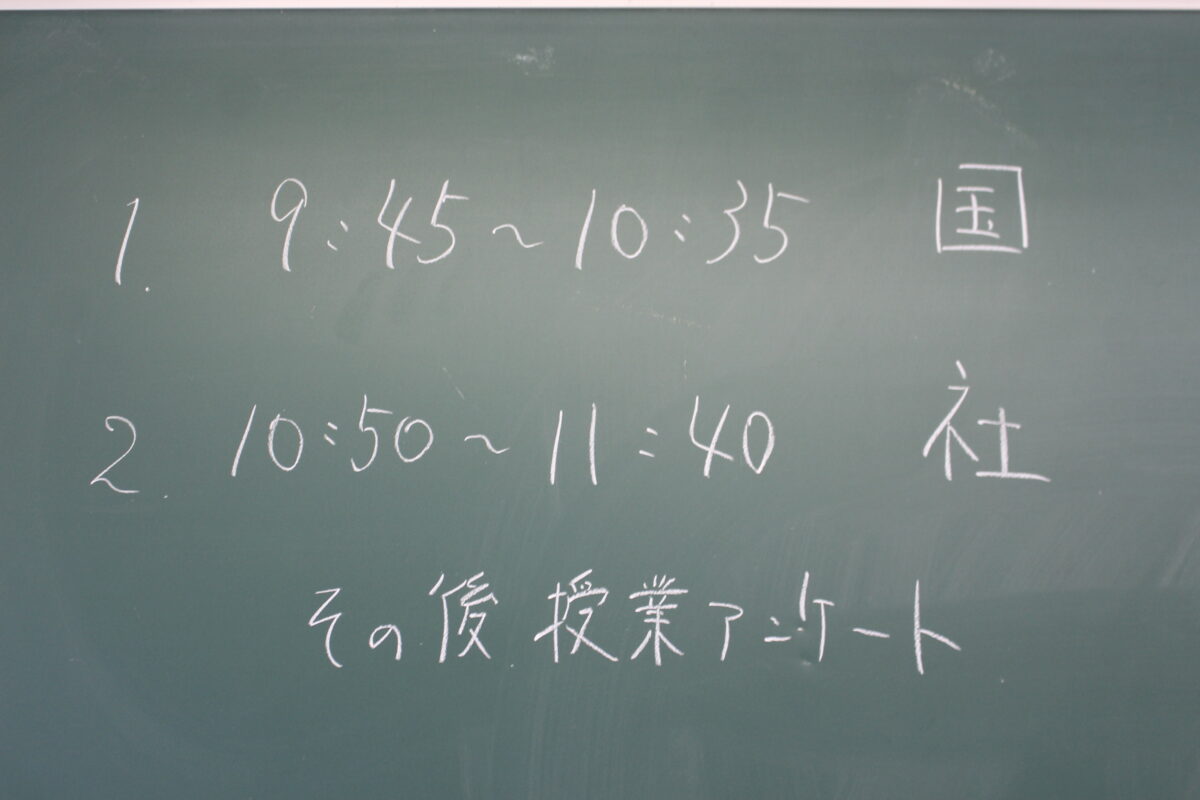 1. 9:45~10:35 国
2. 10:50~11:40 社
その後 授業アンケート